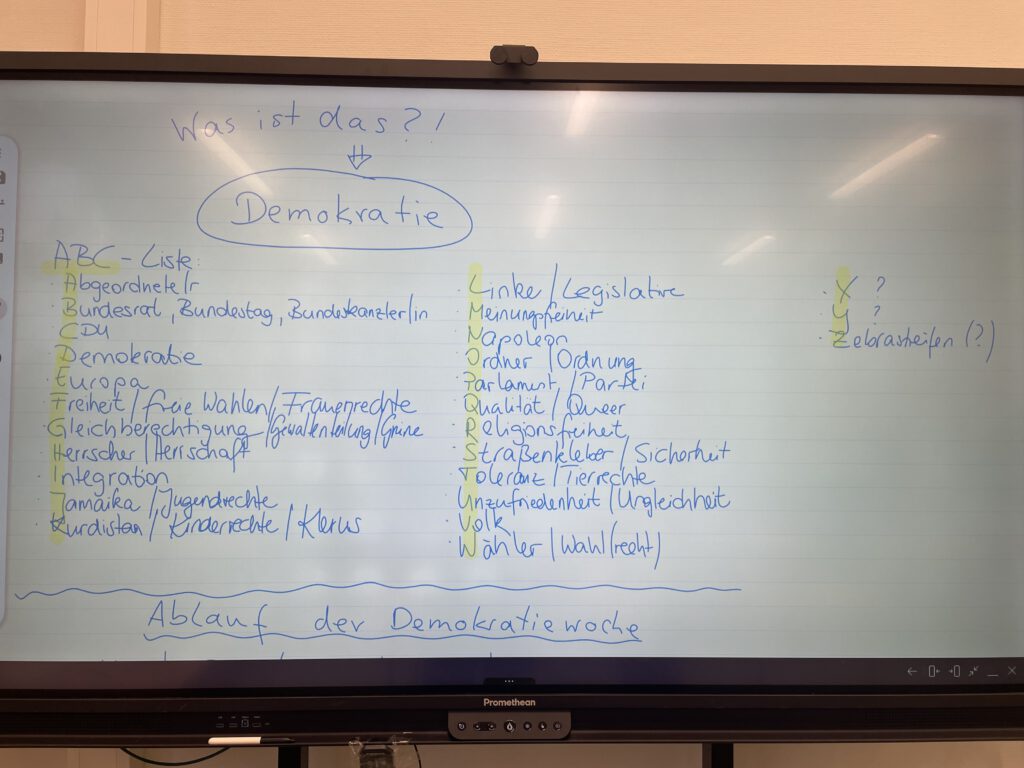 Was ist das?!
⇓
Demokratie
ABC - Liste:
Abgeordnete/r
Bundesrat, Bundestag, Bundeskanzler/in
CDU
Demokratie
Europa
Freiheit / freie Wahlen / Frauenrechte
Gleichberechtigung / Gewaltenteilung / Grüne
Herrscher / Herrschaft
Integration
Jamaika / Jugendrechte
Kurdistan / Kinderrechte / Klerus
Linke / Legislative
Meinungsfreiheit
Napoleon
Ordner / Ordnung
Parlament / Partei
Qualität / Queer
Religionsfreiheit
Straßenkleber / Sicherheit
Toleranz / Tierrechte
Unzufriedenheit / Ungleichheit
Volk
Wähler / Wahl(recht)
X ?
Y ?
Zebrastreifen (?)
Ablauf der Demokratiewoche
Promethean